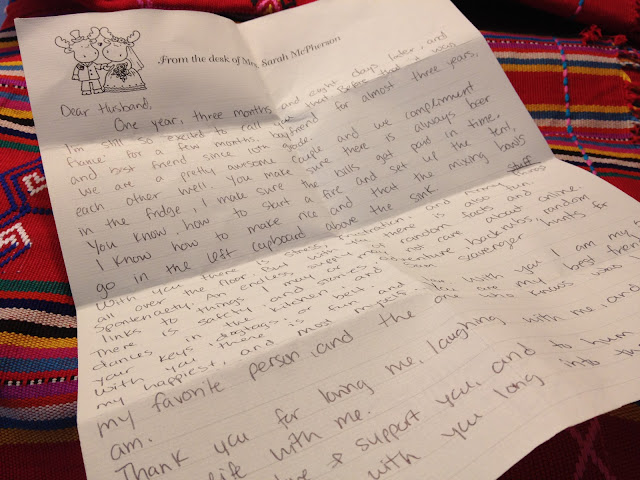 From the desk of Mrs. Sarah McPherson
Dear Husband,
One year, three months and eight days later, and
I'm still so excited to call you that. Before that it was
fiancé for a few months, boyfriend for almost three years,
and best friend since 10th grade.
We are a pretty awesome couple and we complement
each other well. You make sure there is always beer
in the fridge, I make sure the bills get paid in time.
You know how to start a fire and set up the tent,
I know how to make rice and that the mixing bowls
go in the left cupboard above the sink.
With you there is stress, frustration, and stuff
all over the floor. But with you there is also fun
Spontenaety. An endless supply of random facts and
links to things I may or may not care about online.
There is safety and adventure
dances in the kitchen, and scavenger hunts for
your keys, dogtags, or belt.
With you, there is fun and
my happiest, and most myself. You are my best friend
my favorite person, and the one who knows who I
am.
Thank you for loving me, laughing with me, and
life with me.
support you, and to hum
with you long into the